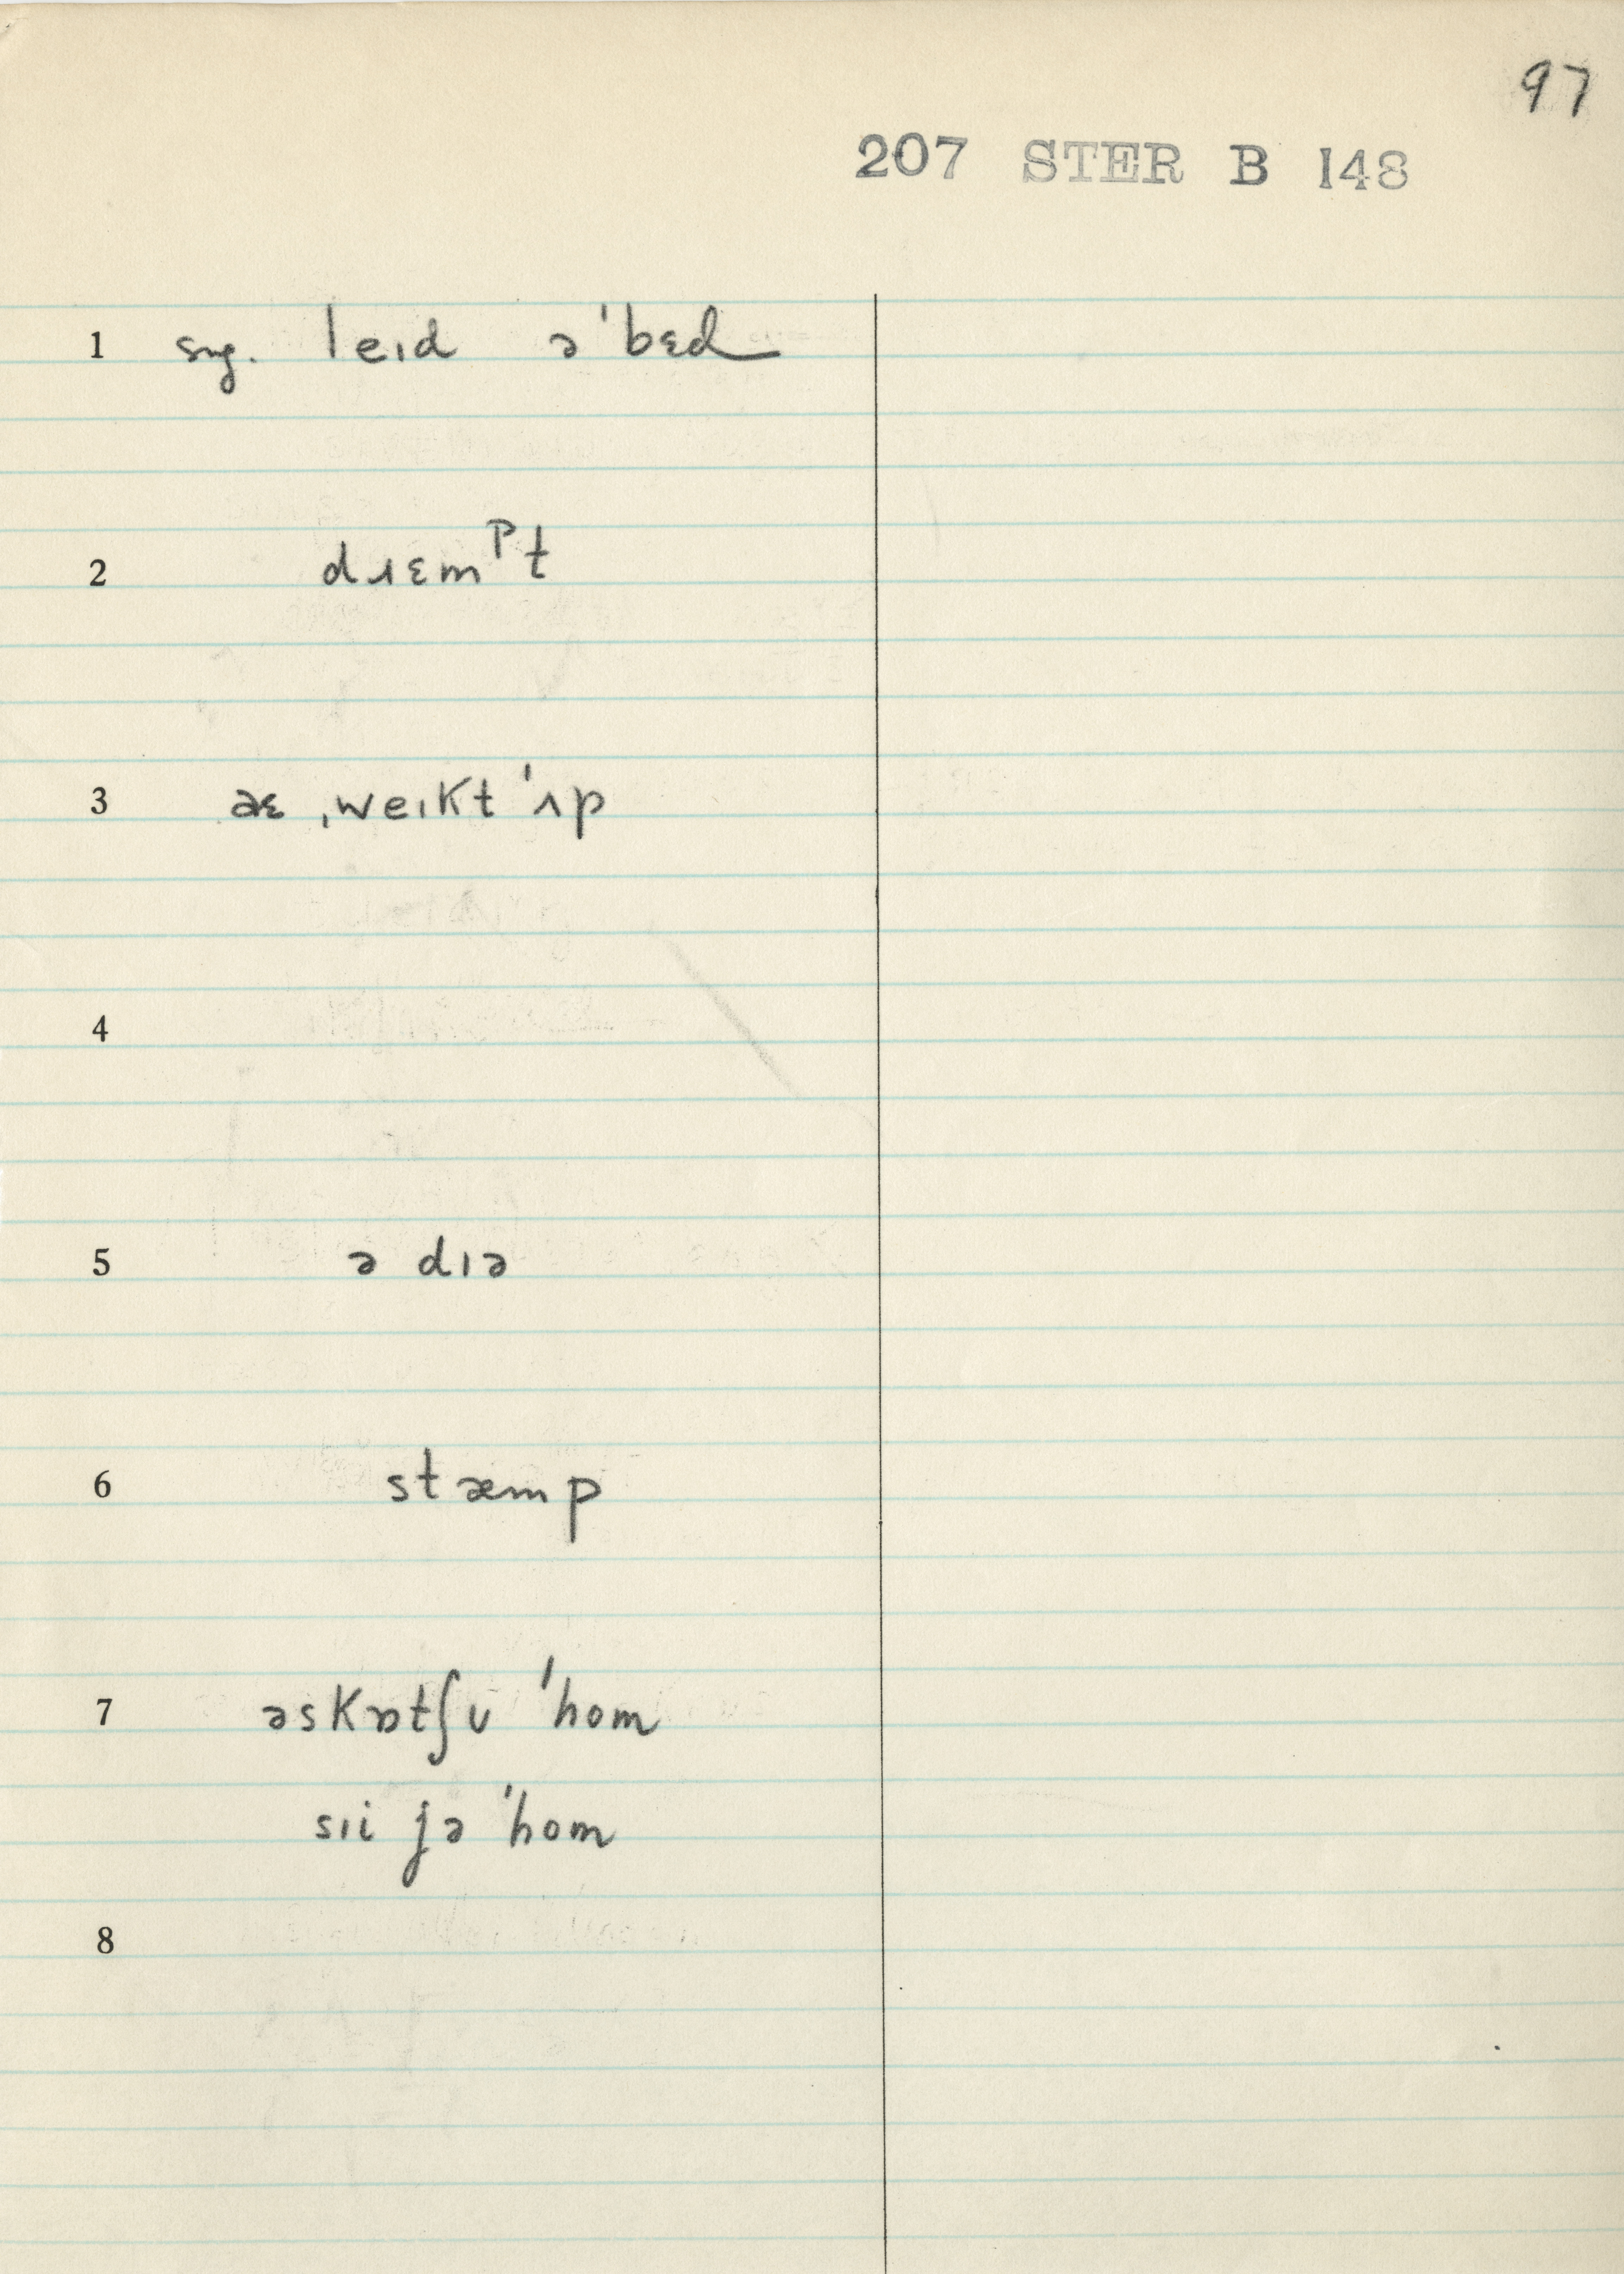 97
207 STER B 148
1 sug. leɪd ə'bɛd
2 dɹɛmᵖt
3 aɛ ˌweɪkt 'ʌp
4
5 ə dɪə
6 stæmp
7 əskɒtʃʊ 'hom
sɪi jə 'hom
8